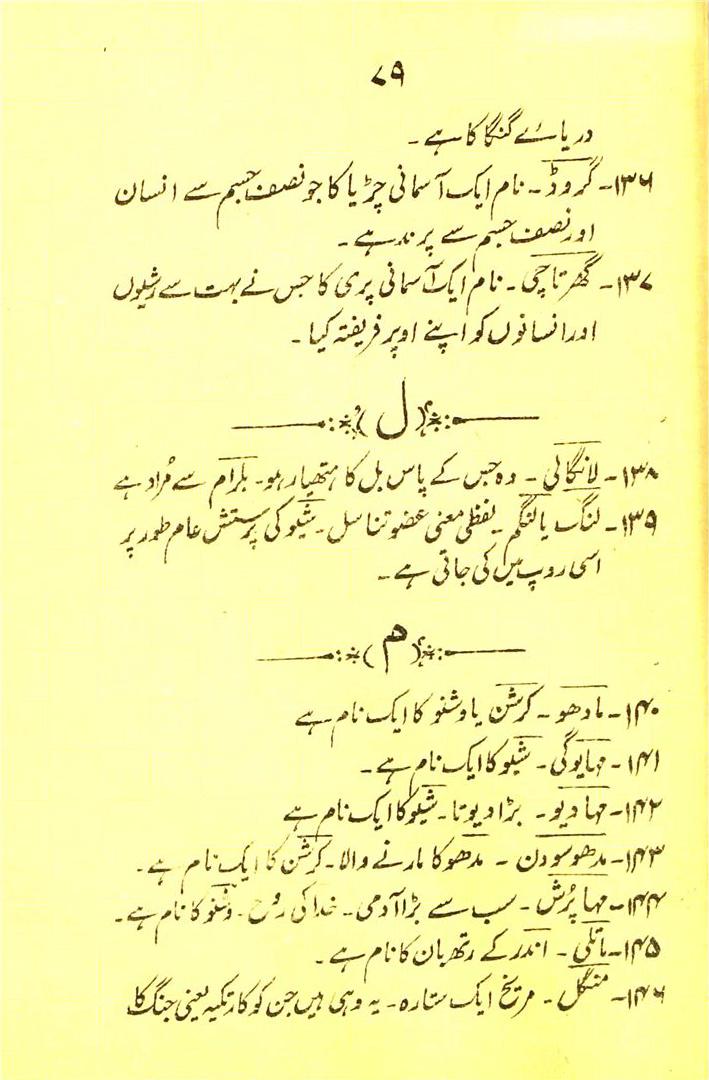 ۷۹
دریائے گنگا کا ہے۔
۱۳۶۔ گروڑ۔ نام ایک آسمانی چڑیا کا جو نصف جسم سے انسان
اور نصف جسم سے پرند ہے۔
۱۳۷۔ گھرتاچی۔ نام ایک آسمانی پری کا جس نے بہت سے رشیوں
اور انسانوں کو اپنے اوپر فریفتہ کیا۔
(ل)
۱۳۸۔ لانگالی۔ وہ جس کے پاس ہل کا ہتھیار ہو۔ بلرام سے مُراد ہے
۱۳۹۔ لنگ یا لنگم۔ لفظی معنی عضو تناسل۔ شیو کی پرستش عام طور پر
اسی روپ میں کی جاتی ہے۔
(م)
۱۴۰۔ مادھو۔ کرشن یا وشنو کا ایک نام ہے
۱۴۱۔ مہایوگی۔ شیو کا ایک نام ہے۔
۱۴۲۔ مہادیو۔ بڑا دیوتا۔ شیو کا ایک نام ہے
۱۴۳۔ مدھوسودن۔ مدھو کا مارنے والا۔ کرشن کا ایک نام ہے۔
۱۴۴۔ مہا پُرش۔ سب سے بڑا آدمی۔ خدا کی روح۔ وشنو کا نام ہے۔
۱۴۵۔ ماتلی۔ اندر کے رتھ بان کا نام ہے۔
۱۴۶۔ منگل۔ مریخ ایک ستارہ۔ یہ وہی ہیں جن کو کارتکیہ یعنی جنگ کا